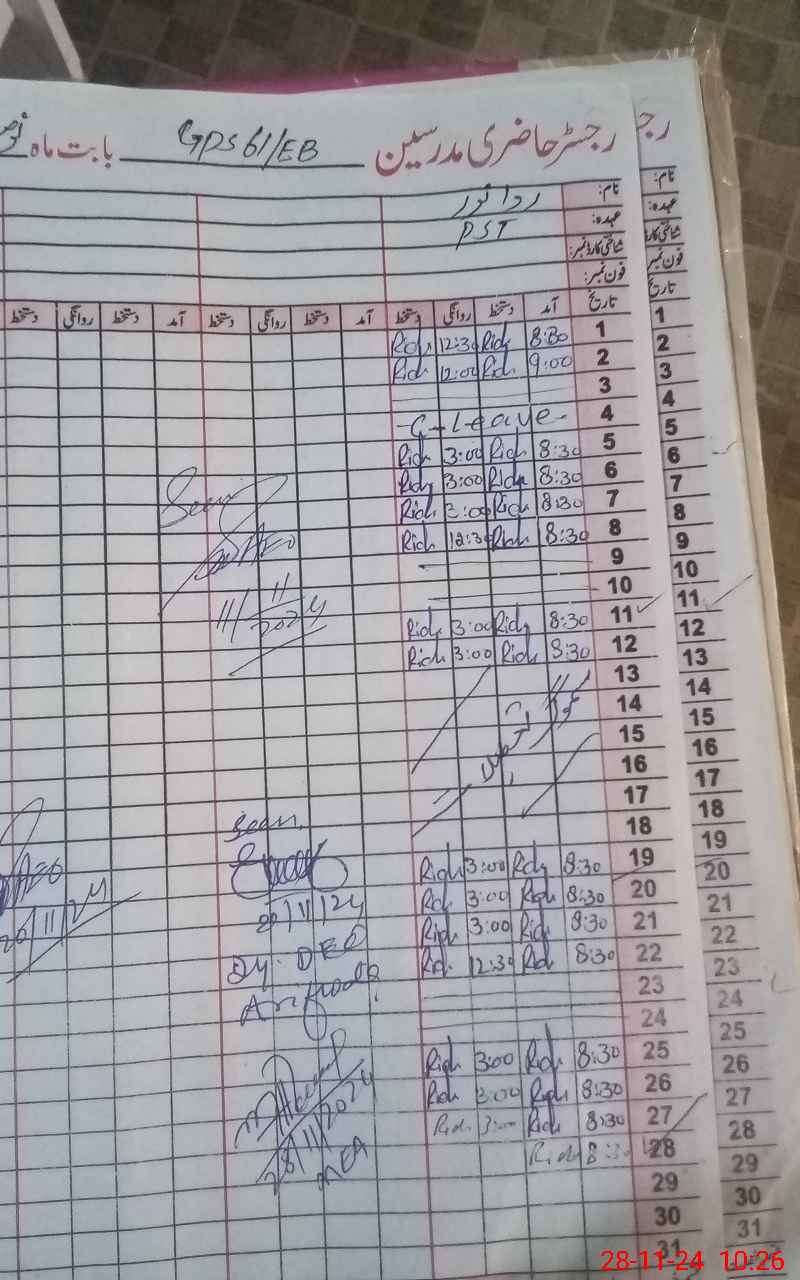 رجسٹر حاضری مدرسین GPS 61/EB بابت ماہ
نام: ردا نور
عہدہ: PST
شناختی کارڈ نمبر:
فون نمبر:
تاریخ آمد دستخط روانگی دستخط آمد دستخط روانگی دستخط آمد دستخط روانگی دستخط
1 8:30 Rida 12:30 Rida
2 9:00 Rida 12:00 Rida
3
4 C-Leave-
5 8:30 Rida 3:00 Rida
6 8:30 Rida 3:00 Rida
7 8:30 Rida 3:00 Rida
8 8:30 Rida 12:30 Rida
9
10
11 8:30 Rida 3:00 Rida
12 8:30 Rida 3:00 Rida
13
14
15
16
17
18
19 8:30 Rida 3:00 Rida
20 8:30 Rida 3:00 Rida
21 8:30 Rida 3:00 Rida
22 8:30 Rida 12:30 Rida
23
24
25 8:30 Rida 3:00 Rida
26 8:30 Rida 3:00 Rida
27 8:30 Rida 3:00 Rida
28 8:30 Rida
29
30
31
Seen
AEO
11/11/2024
Seen
20/11/24
Dy. DEO
Arifwala
28/11/2024
MEA
AEO
20/11/24
رجـ
نام:
عہدہ:
شناختی کارڈ
فون نمبر
تاریخ
1
2
3
4
5
6
7
8
9
10
11
12
13
14
15
16
17
18
19
20
21
22
23
24
25
26
27
28
29
30
31
28-11-24 10:26